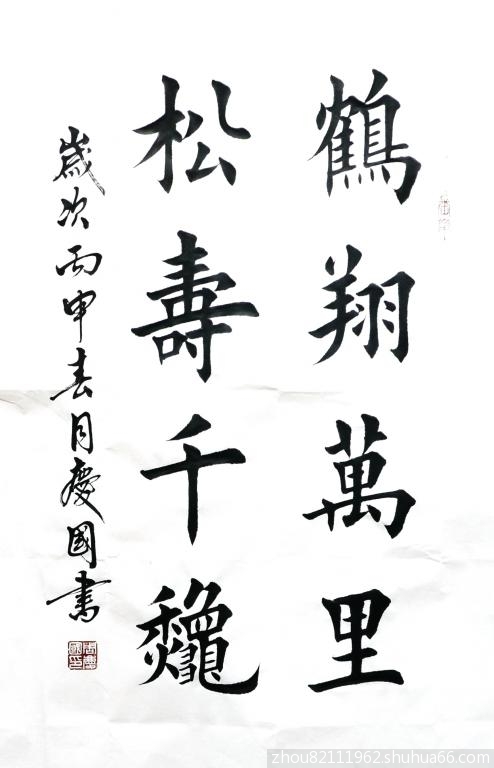 鶴翔萬里
松壽千龝
歲次丙申春月慶國書
zhou82111962.shuhua66.com